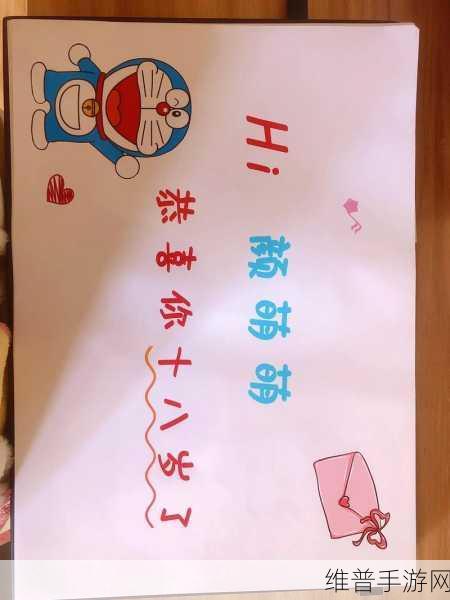 Hi 颜萌萌
恭喜你十八岁了
维普手游网